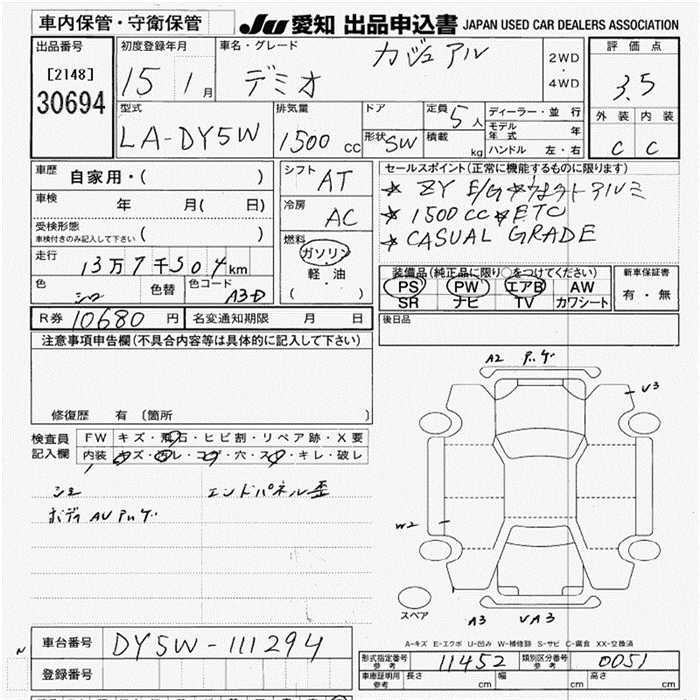 車内保管・守衛保管
JU 愛知 出品申込書 JAPAN USED CAR DEALERS ASSOCIATION
出品番号
[2148]
30694
初度登録年月
15 1月
車名・グレード
デミオ カジュアル
2WD
・
4WD
評価点
3.5
外装 内装
C C
型式
LA-DY5W
排気量
1500 cc
ドア
形状 SW
定員 5人
積載 kg
ディーラー・並行
モデル年式 年
ハンドル 左・右
車歴 自家用・( )
車検 年 月( 日)
受検形態
車検付きのみ記入して下さい ( )
走行 13万7千504km
色 シロ 色替 色コード A3D
シフト AT
冷房 AC
燃料
ガソリン
軽・油
( )
セールスポイント(正常に機能するものに限ります)
1500CC ETC
CASUAL GRADE
装備品(純正品に限り○をつけてください)
PS PW エアB AW
SR ナビ TV カワシート
新車保証書
有・無
R券 10680円 名変通知期限 月 日
後日品
注意事項申告欄(不具合内容等は具体的に記入して下さい)
修復歴 有 〔箇所 〕
検査員記入欄
FW キズ・飛石・ヒビ割・リペア跡・X要
内装 キズ・汚レ・コゲ・穴・スレ・キレ・破レ
エンドパネル歪
A2
V3
W2
スペア
A3 VA3
A-キズ E-エクボ U-凹み W-補修跡 S-サビ C-腐食 XX-交換済
車台番号 DY5W-111294
登録番号
形式指定番号 参考 11452 類別区分番号 参考 0051
車庫証明用 参考 長さ cm 幅 cm 高さ cm